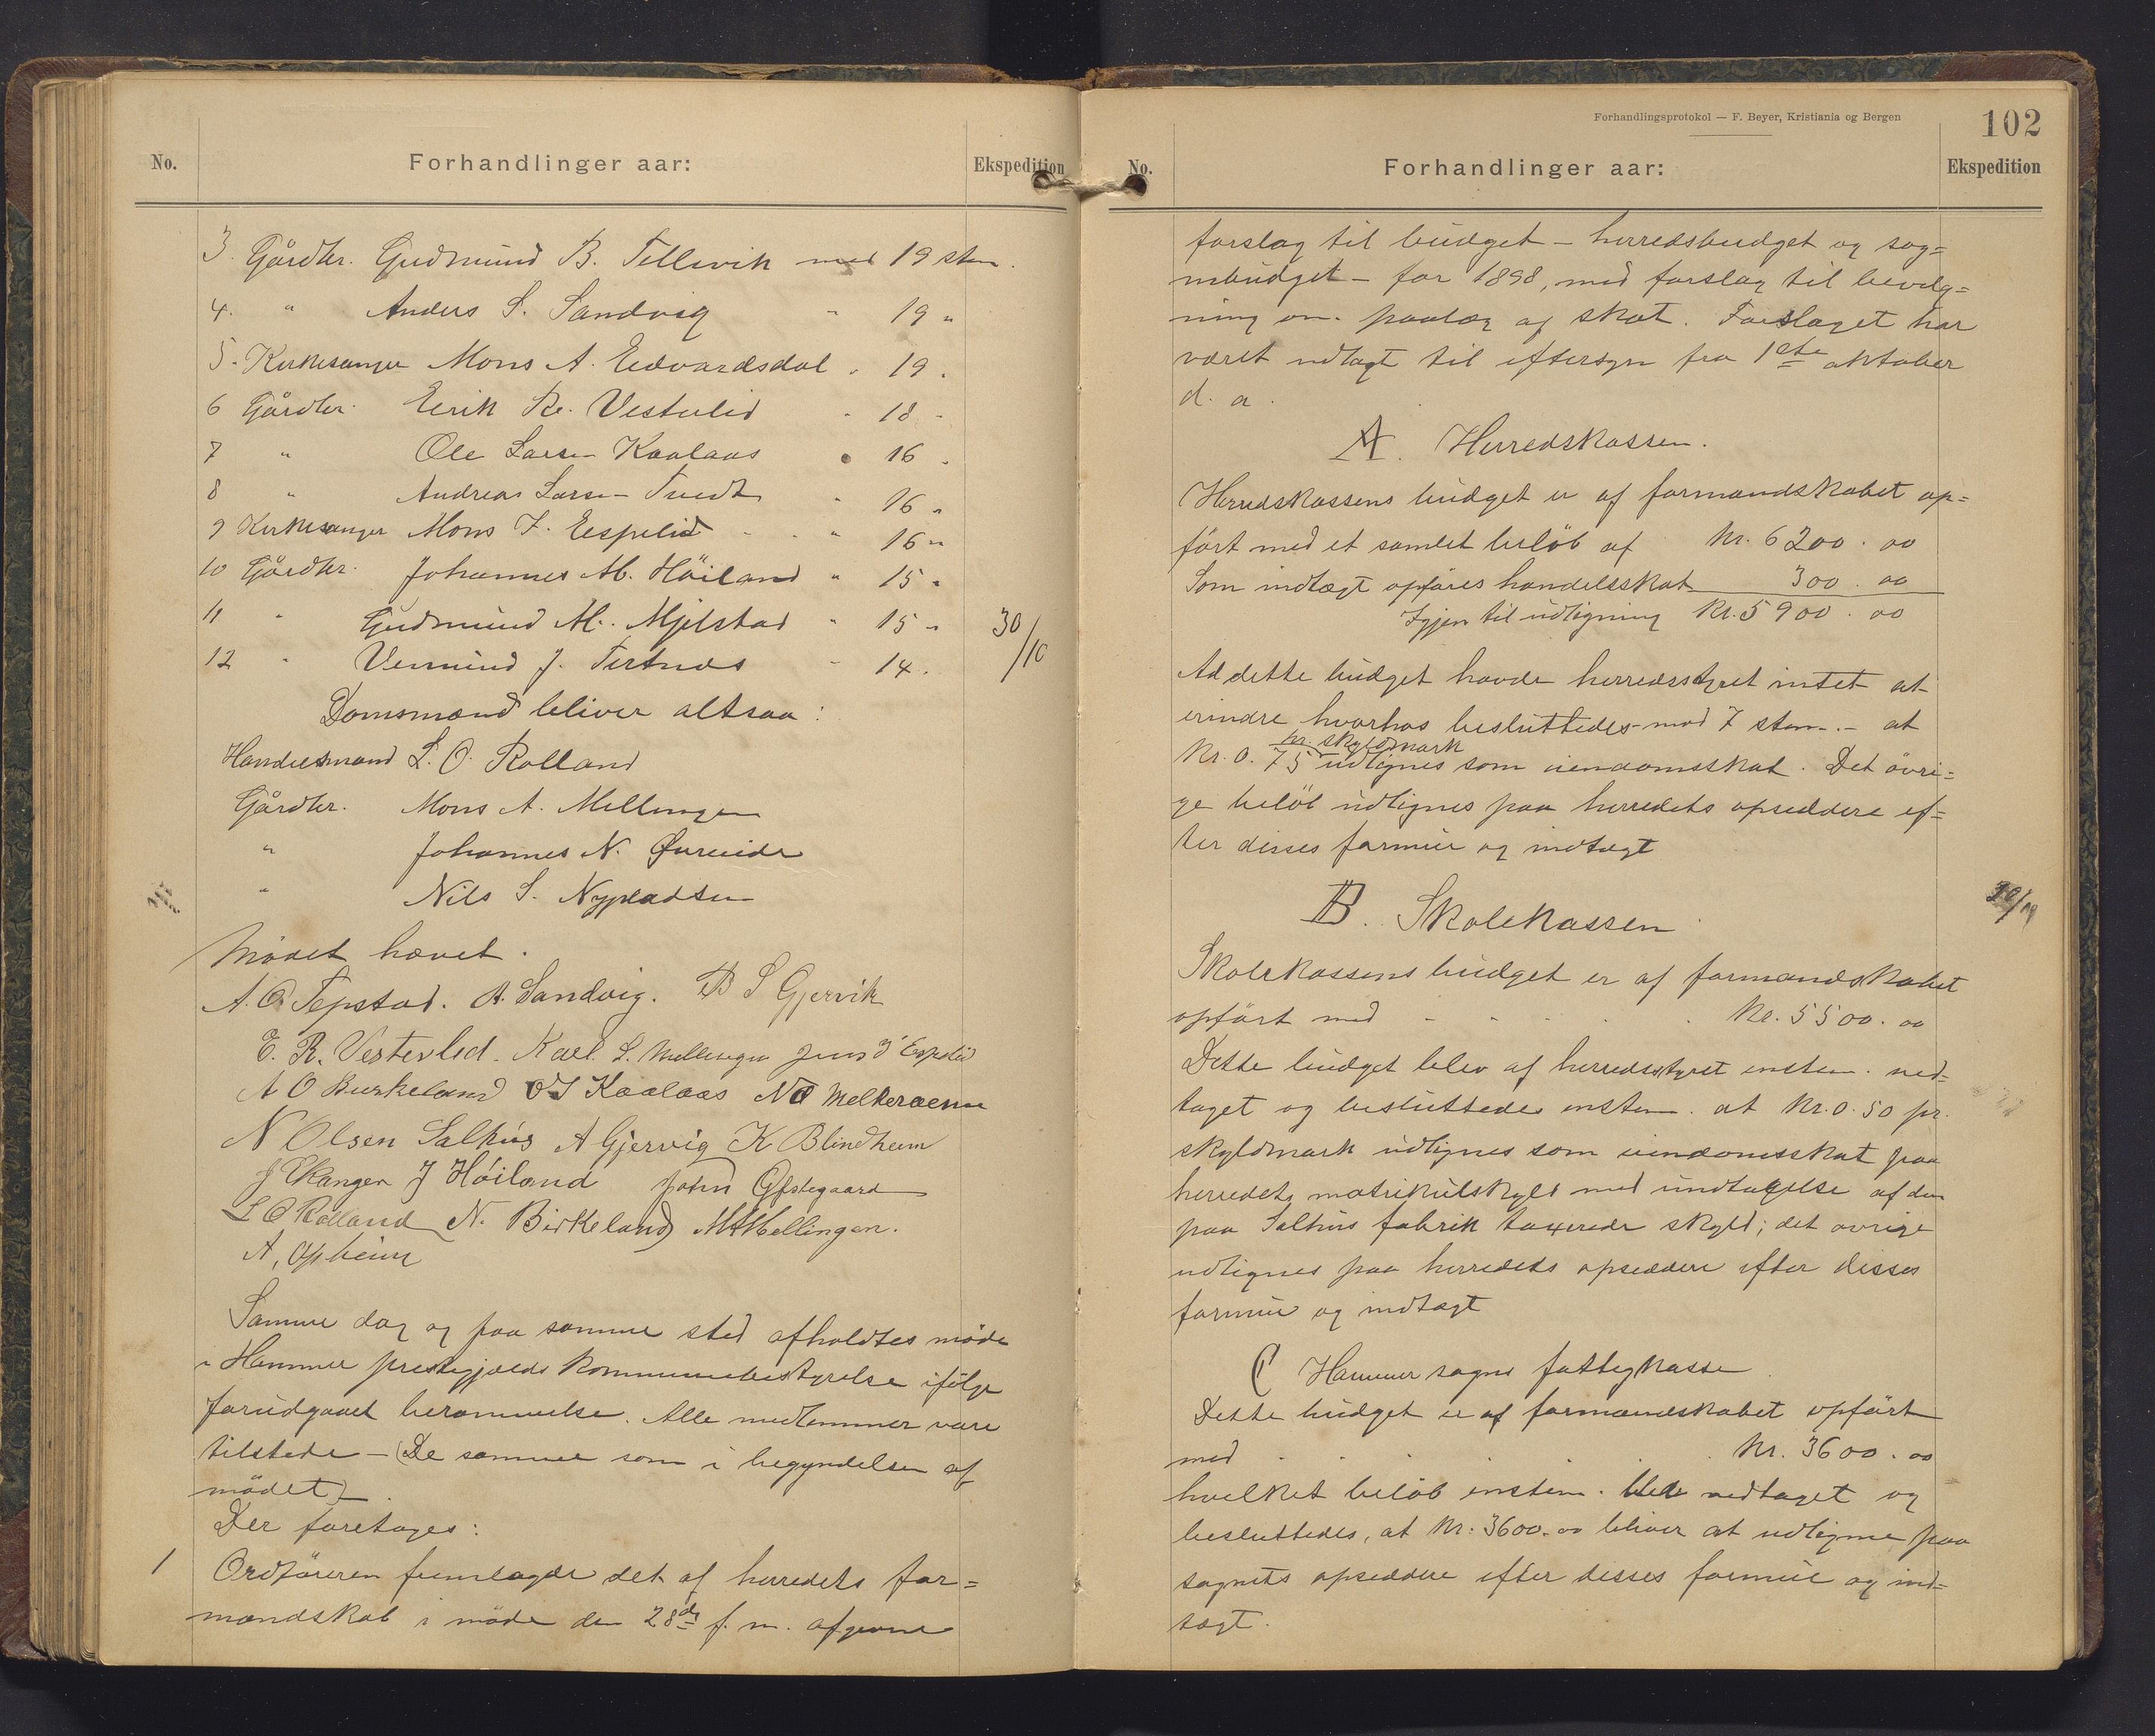 No.
Forhandlinger aar:
Ekspedition
3. Gårdbr. Gudmund B. Tellevik med 19 stem.
4. " Anders S. Sandvig " 19 "
5. Kirkesanger Mons A. Edvardsdal " 19 "
6 Gårdbr. Eirik R. Vestvlid " 18 "
7 " Ole Larsen Kaalaas " 16 "
8 " Andreas Larsen Tvedt " 16 "
9 Kirkesanger Mons J. Espelid " 16 "
10 Gårdbr. Johannes M. Höiland " 15 "
11 " Gudmund M. Mjelstad " 15 "
12 " Vermund J. Tertnæs " 14 "
30/10
Domsmænd bliver altsaa:
Handelsmand L. O. Rolland
Gårdbr. Mons A. Mellingen
" Johannes N. Øvreeide
" Nils S. Nypladsen
Mödet hævet.
A. O. Tepstad. A. Sandvig. B S Gjervik
E. R. Vestevlid. Karl L. Mellingen Jens J Espelid
A O Burkeland O L Kaalaas N O Melkeraaen
N Olsen Salhus A Gjervig K Blindheim
J Ekangen J Höiland John Ofstegaard
L O Rolland N. Birkeland M A Mellingen.
A, Opheim
Samme dag og paa samme sted afholdtes möde
i Hammer prestegjælds kommunebestyrelse ifölge
forudgaaet berammelse. Alle medlemmer vare
tilstede – (De samme som i begyndelsen af
mödet) –
Der foretoges:
1 Ordföreren fremlagde det af herredets for=
mandskab i möde den 28de f. m. afgivne
Forhandlingsprotokol — F. Beyer, Kristiania og Bergen
102
No.
Forhandlinger aar:
Ekspedition
forslag til budget – herredsbudget og sog=
nebudget – for 1898, med forslag til bevilg=
ning om paalæg af skat. Forslaget har
været udlagt til eftersyn fra 1ste oktober
d. a.
A. Herredskassen.
Herredskassens budget er af formandskabet op=
fört med et samlet belöb af Kr. 6200.00
Som indtægt opföres handelsskat 300.00
Igjen til udligning Kr. 5900.00
Ad dette budget havde herredsstyret intet at
erindre hvorhos besluttedes – mod 7 stem. – at
pr. skyldmark
Kr. 0.75 udlignes som eiendomsskat. Det övri=
ge belöb udlignes paa herredets opsiddere ef=
ter disses formue og indtægt
B. Skolekassen
Skolekassens budget er af formandskabet
opfört med Kr. 5500.00
Dette budget blev af herredsstyret enstem. ved=
taget og besluttedes enstem. at Kr. 0.50 pr.
skyldmark udlignes som eiendomsskat paa
herredets matrikulskyld med undtagelse af den
paa Salhus fabrik taxerede skyld; det övrige
udlignes paa herredets opsiddere efter disses
formue og indtægt
C Hammer sogns fattigkasse
Dette budget er af formandskabet opfört
med Kr. 3600.00
hvilket belöb enstem. blev vedtaget og
besluttedes, at Kr. 3600.00 bliver at udligne paa
sognets opsiddere efter disses formue og ind=
tægt.